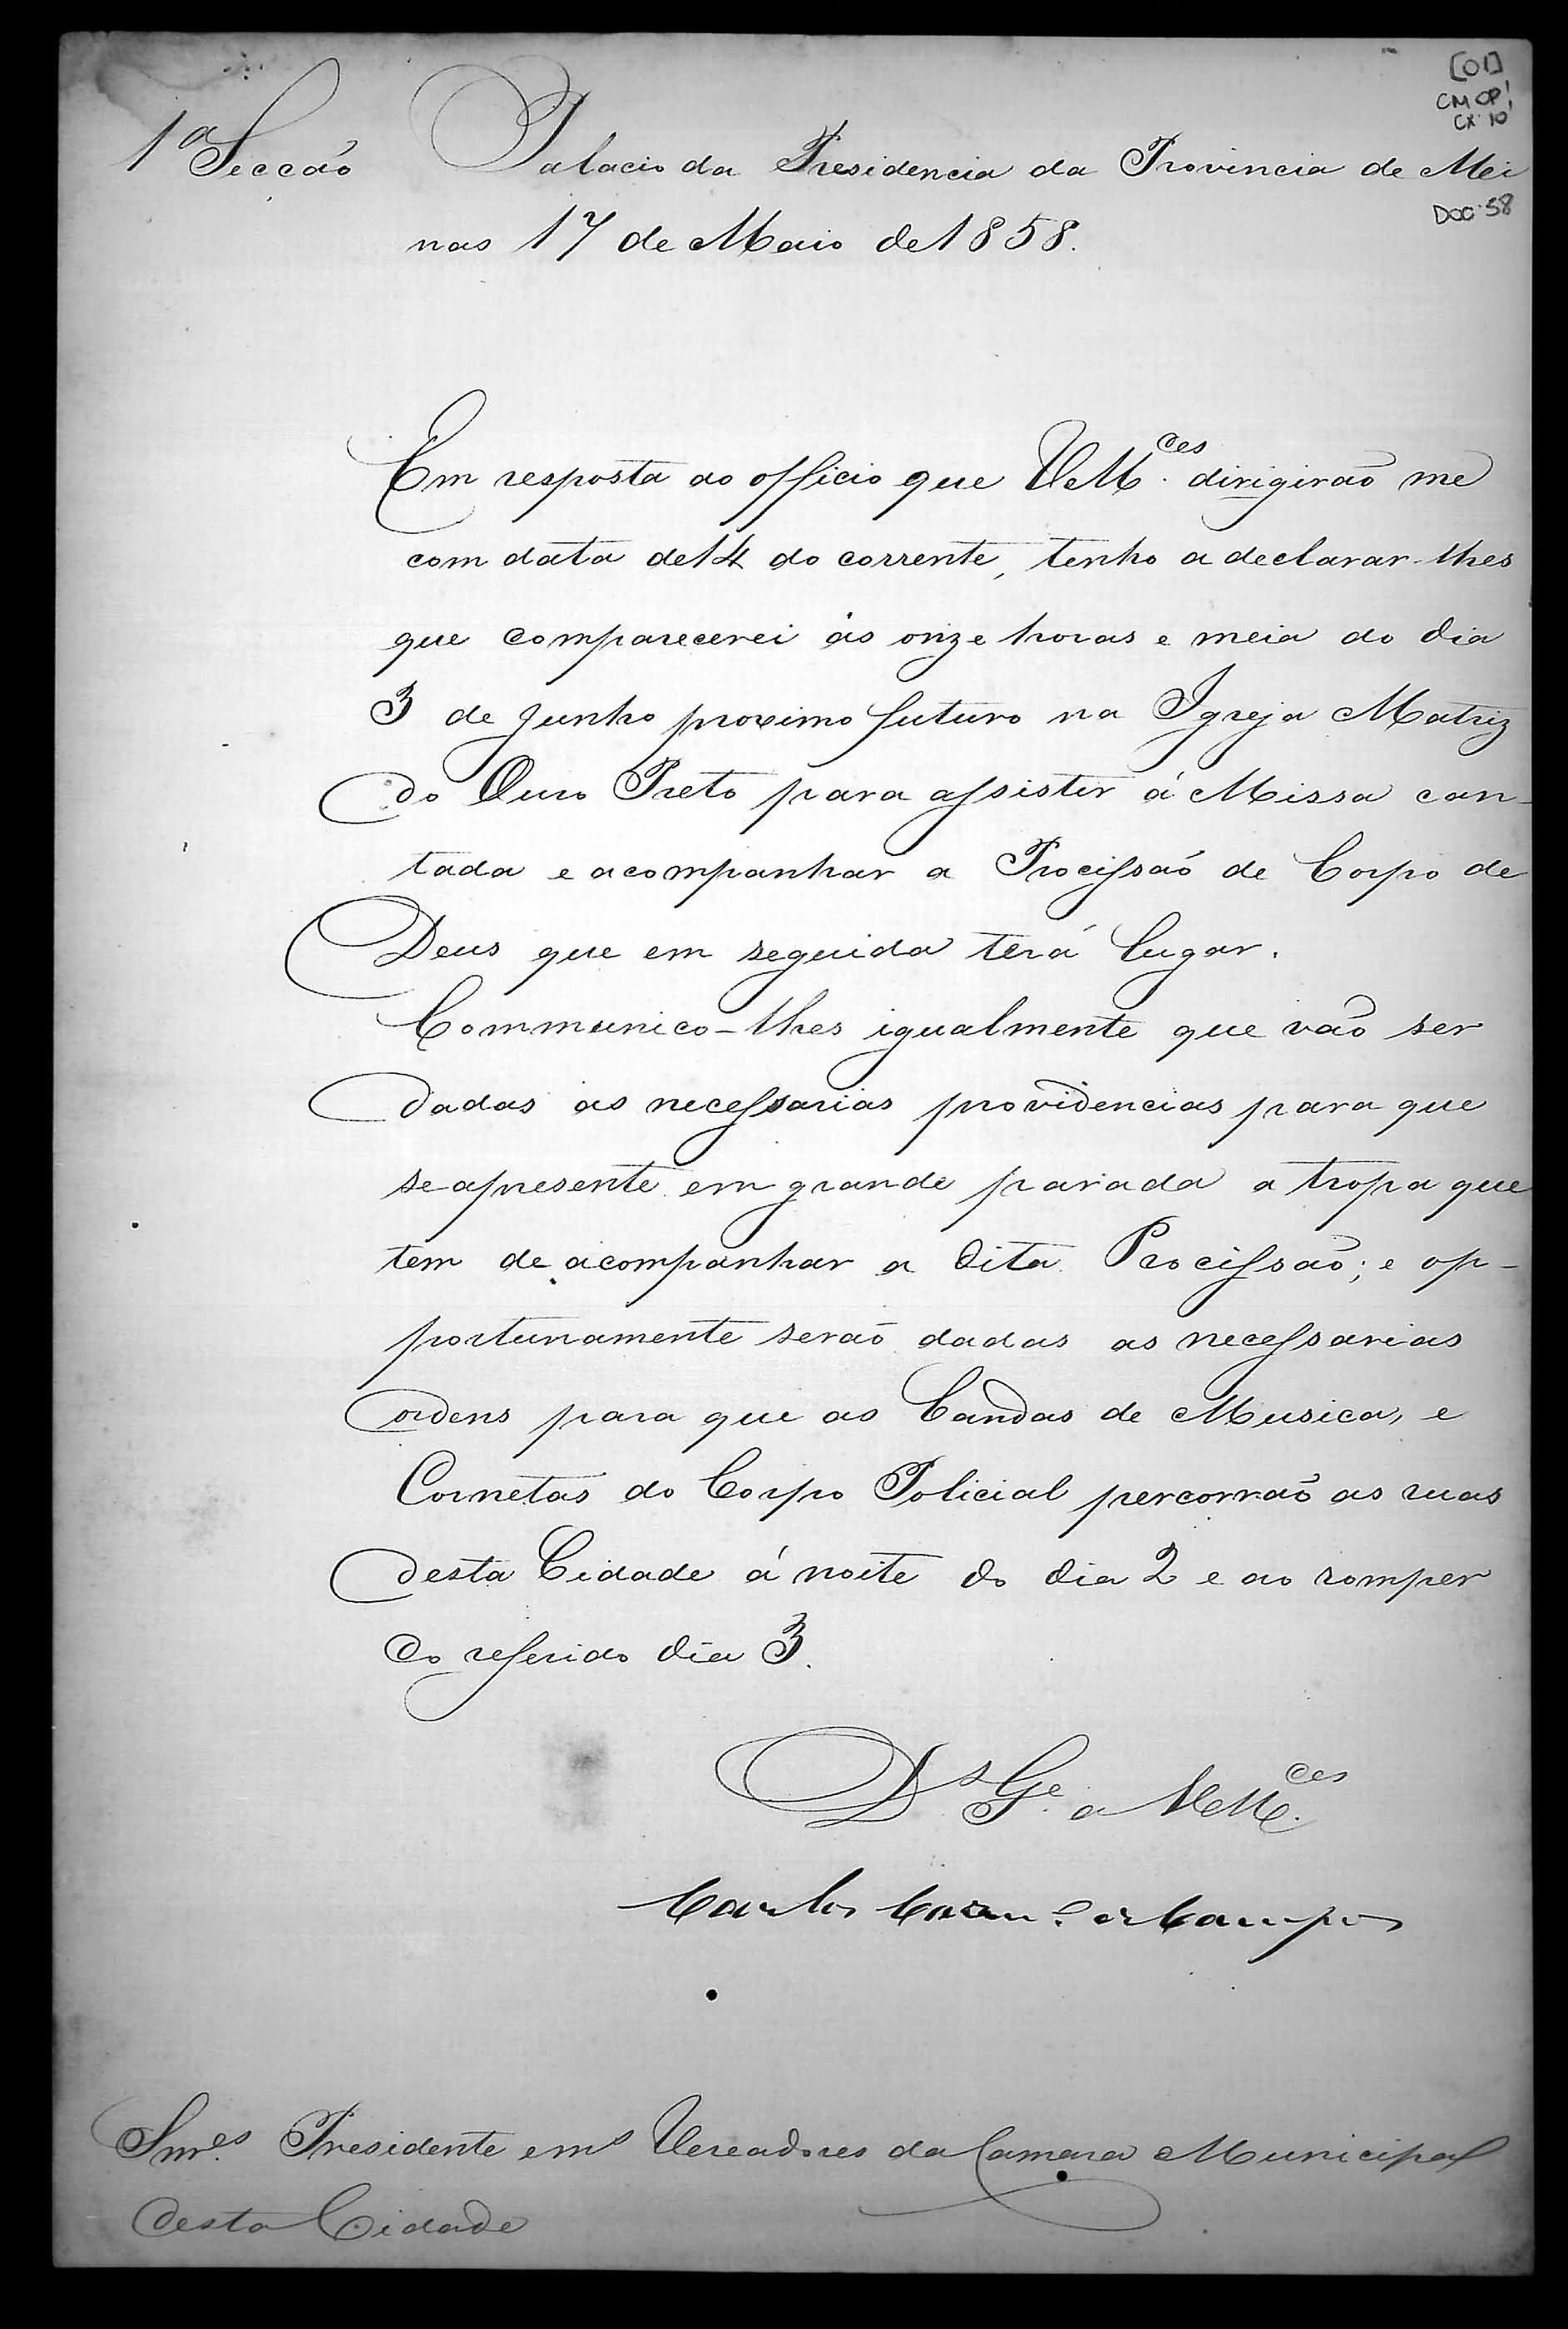 [01]
CMOP
CX 10
1ª Secção Palacio da Presidencia da Provincia de Mi
DOC 58
nas 17 de Maio de 1858.
Em resposta ao officio que VM.ces dirigirão me
com data de 14 do corrente, tenho a declarar-lhes
que comparecerei ás onze horas e meia do dia
3 de Junho proximo futuro na Igreja Matriz
do Ouro Preto para assistir á Missa can-
tada e acompanhar a Procissão de Corpo de
Deus que em seguida terá lugar.
Communico-lhes igualmente que vão ser
dadas as necessarias providencias para que
se apresente em grande parada a tropa que
tem de acompanhar a dita Procissão; e op-
portunamente serão dadas as necessarias
ordens para que as Bandas de Musica, e
Cornetas do Corpo Policial percorrão as ruas
desta Cidade á noite do dia 2 e ao romper
do referido dia 3.
Ds Ge a VMces.
Carlos Carn.º de Campos
Snr.es Presidente e ms Vereadores da Camara Municipal
desta Cidade